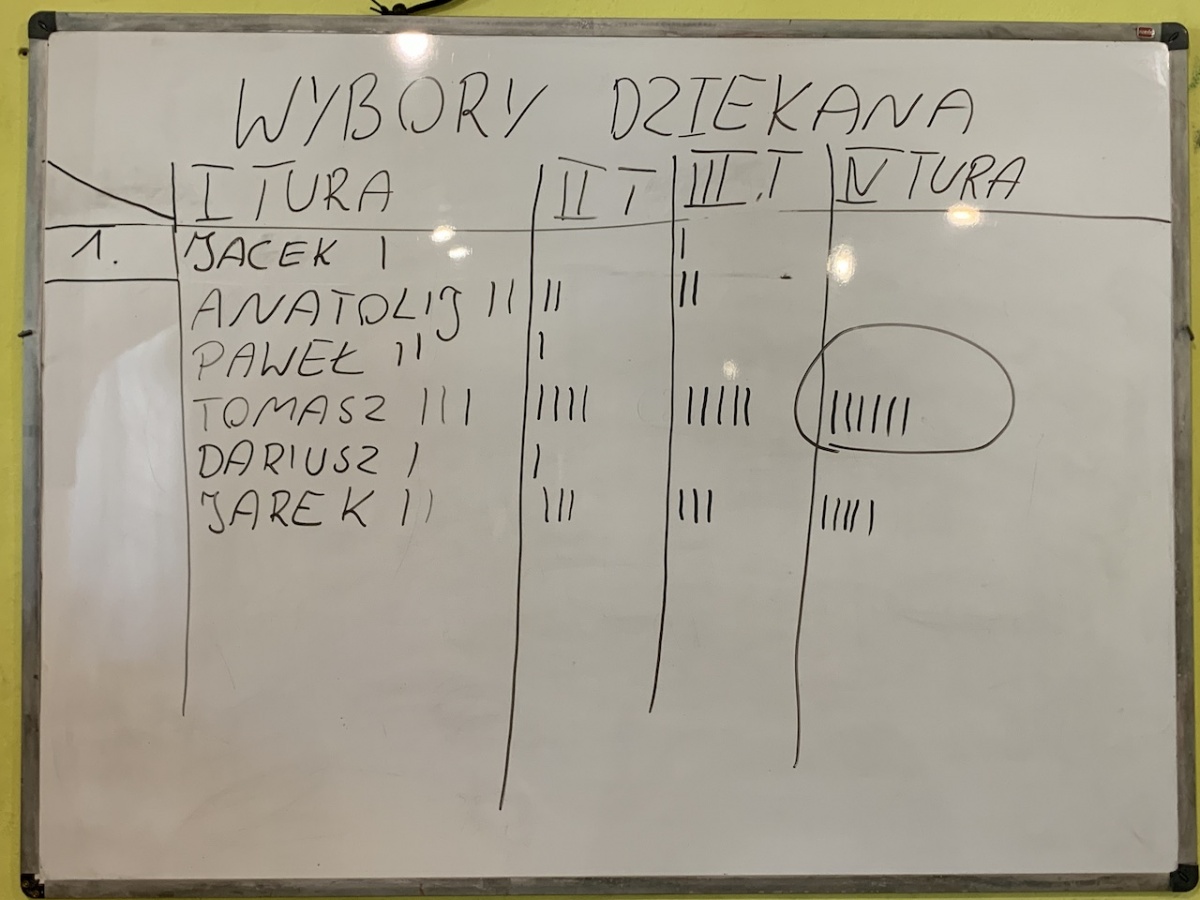 WYBORY DZIEKANA
I TURA II T III.T IV TURA
1. JACEK I I
ANATOLIJ II II II
PAWEŁ II I
TOMASZ III IIII IIIII IIIIIII
DARIUSZ I I
JAREK II III III IIIII